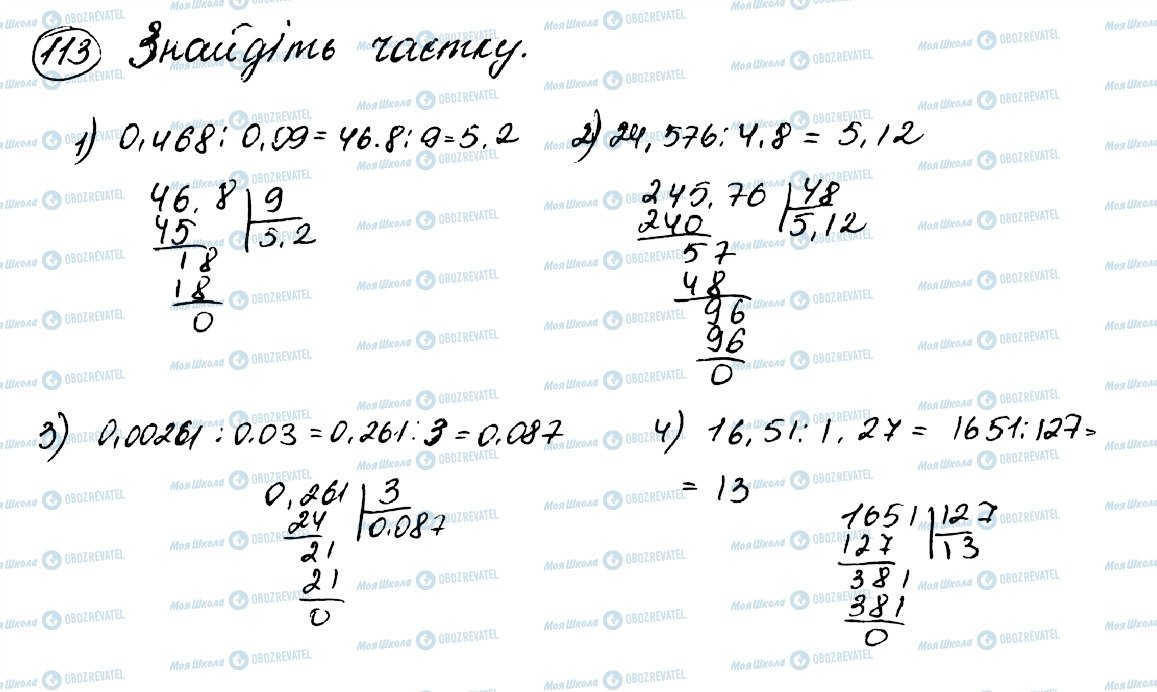 113 Знайдіть частку.
1) 0,468 : 0,09 = 46.8 : 9 = 5,2
46,8 9
45 5,2
18
18
0
2) 24,576 : 4,8 = 5,12
245,76 48
240 5,12
57
48
96
96
0
3) 0,00261 : 0.03 = 0,261 : 3 = 0,087
0,261 3
24 0,087
21
21
0
4) 16,51 : 1,27 = 1651 : 127 =
= 13
1651 127
127 13
381
381
0
МояШкола OBOZREVATEL